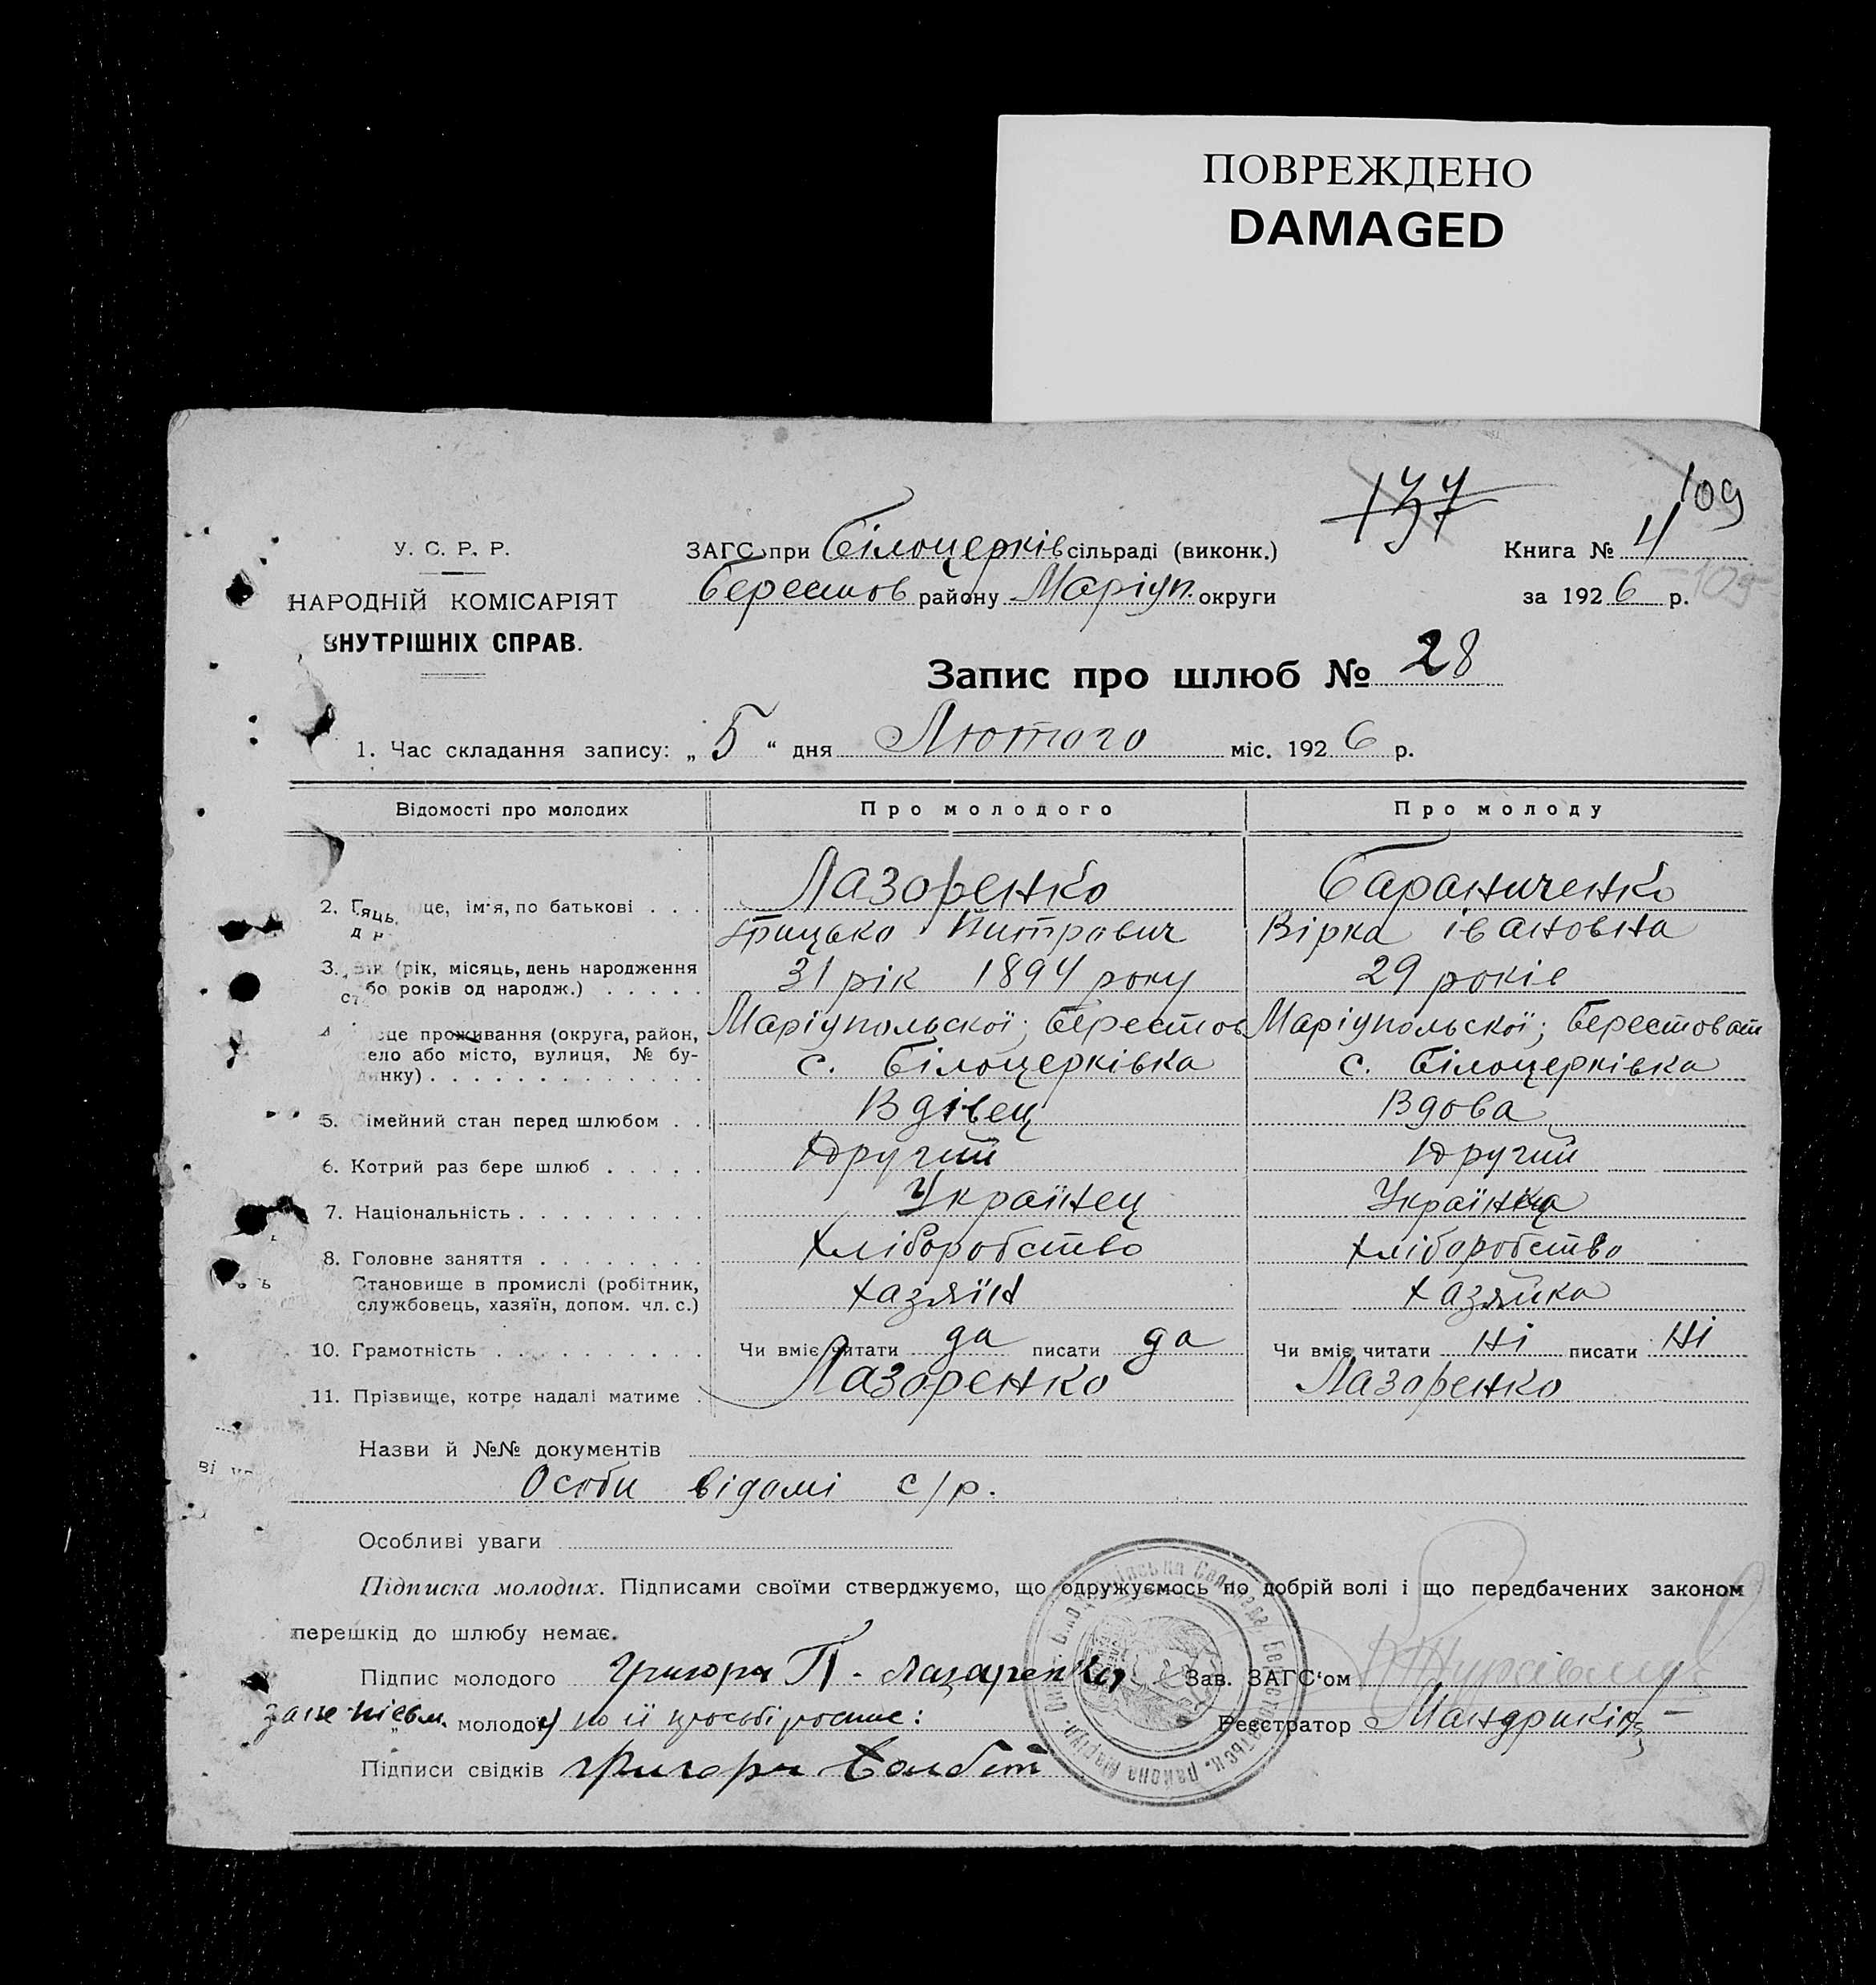 ПОВРЕЖДЕНО
DAMAGED
137
109
У. С. Р. Р.
НАРОДНІЙ КОМІСАРІЯТ
ВНУТРІШНІХ СПРАВ.
ЗАГС при Білоцерків сільраді (виконк.)
Берестов району Маріуп. округи
Книга № 4
за 1926 р.
105
Запис про шлюб № 28
1. Час складання запису: „ 5 “ дня Лютого міс. 1926 р.
Відомості про молодих Про молодого Про молоду
Лазоренко Бараниченко
2. це, ім'я, по батькові . . .
Грицько Питрович Вірка івановна
3. Вік (рік, місяць, день народження
бо років од народж.) . . . . . 31 рік 1894 року 29 років
це проживання (округа, район, Маріупольскої; берестов Маріупольскої; берестоват
ело або місто, вулиця, № бу-
динку) . . . . . . . . . . . . . с. білоцерківка с. білоцерківка
5. імейний стан перед шлюбом . . Вдівец Вдова
6. Котрий раз бере шлюб . . . . . Другий Другий
7. Національність . . . . . . . . . Українец Українка
8. Головне заняття . . . . . . . . Хліборобство Хліборобство
Становище в промислі (робітник,
службовець, хазяїн, допом. чл. с.) Хазяїн Хазяйка
10. Грамотність . . . . . . . . . . Чи вміє читати да писати да Чи вміє читати Ні писати Ні
11. Прізвище, котре надалі матиме . Лазоренко Лазоренко
Назви й №№ документів
Особи відомі с/р.
Особливі уваги
Підписка молодих. Підписами своїми стверджуємо, що одружуємось по добрій волі і що передбачених законом
перешкід до шлюбу немає.
Підпис молодого Григори П. Лазаренко Зав. ЗАГС'ом
молодої по її просьбі росписс: Реєстратор Мандрикін
Підписи свідків Григори